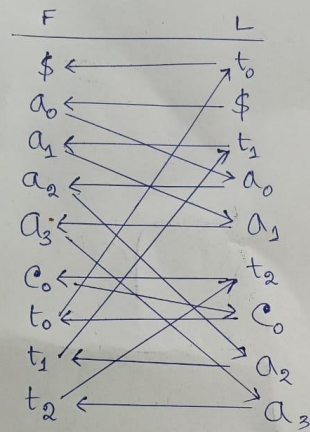 F L
$ t₀
a₀ $
a₁ t₁
a₂ a₀
a₃ a₁
c₀ t₂
t₀ c₀
t₁ a₂
t₂ a₃